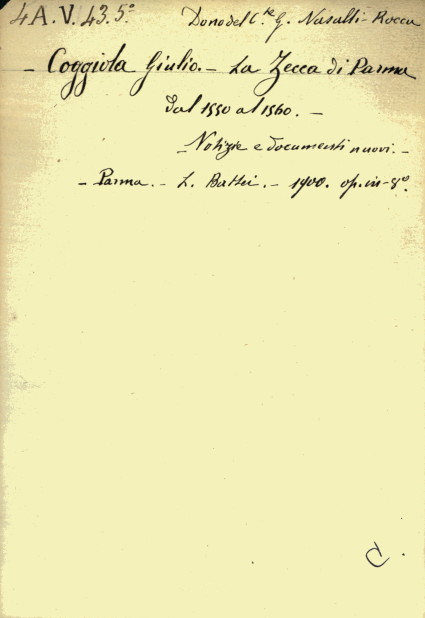 4A.V.43.5°
Dono del C.te G. Nasalli-Rocca
- Coggiola Giulio. - La Zecca di Parma
dal 1550 al 1560. -
Notizie e documenti nuovi. -
- Parma. - L. Battei. - 1900. op. in-8°
C.